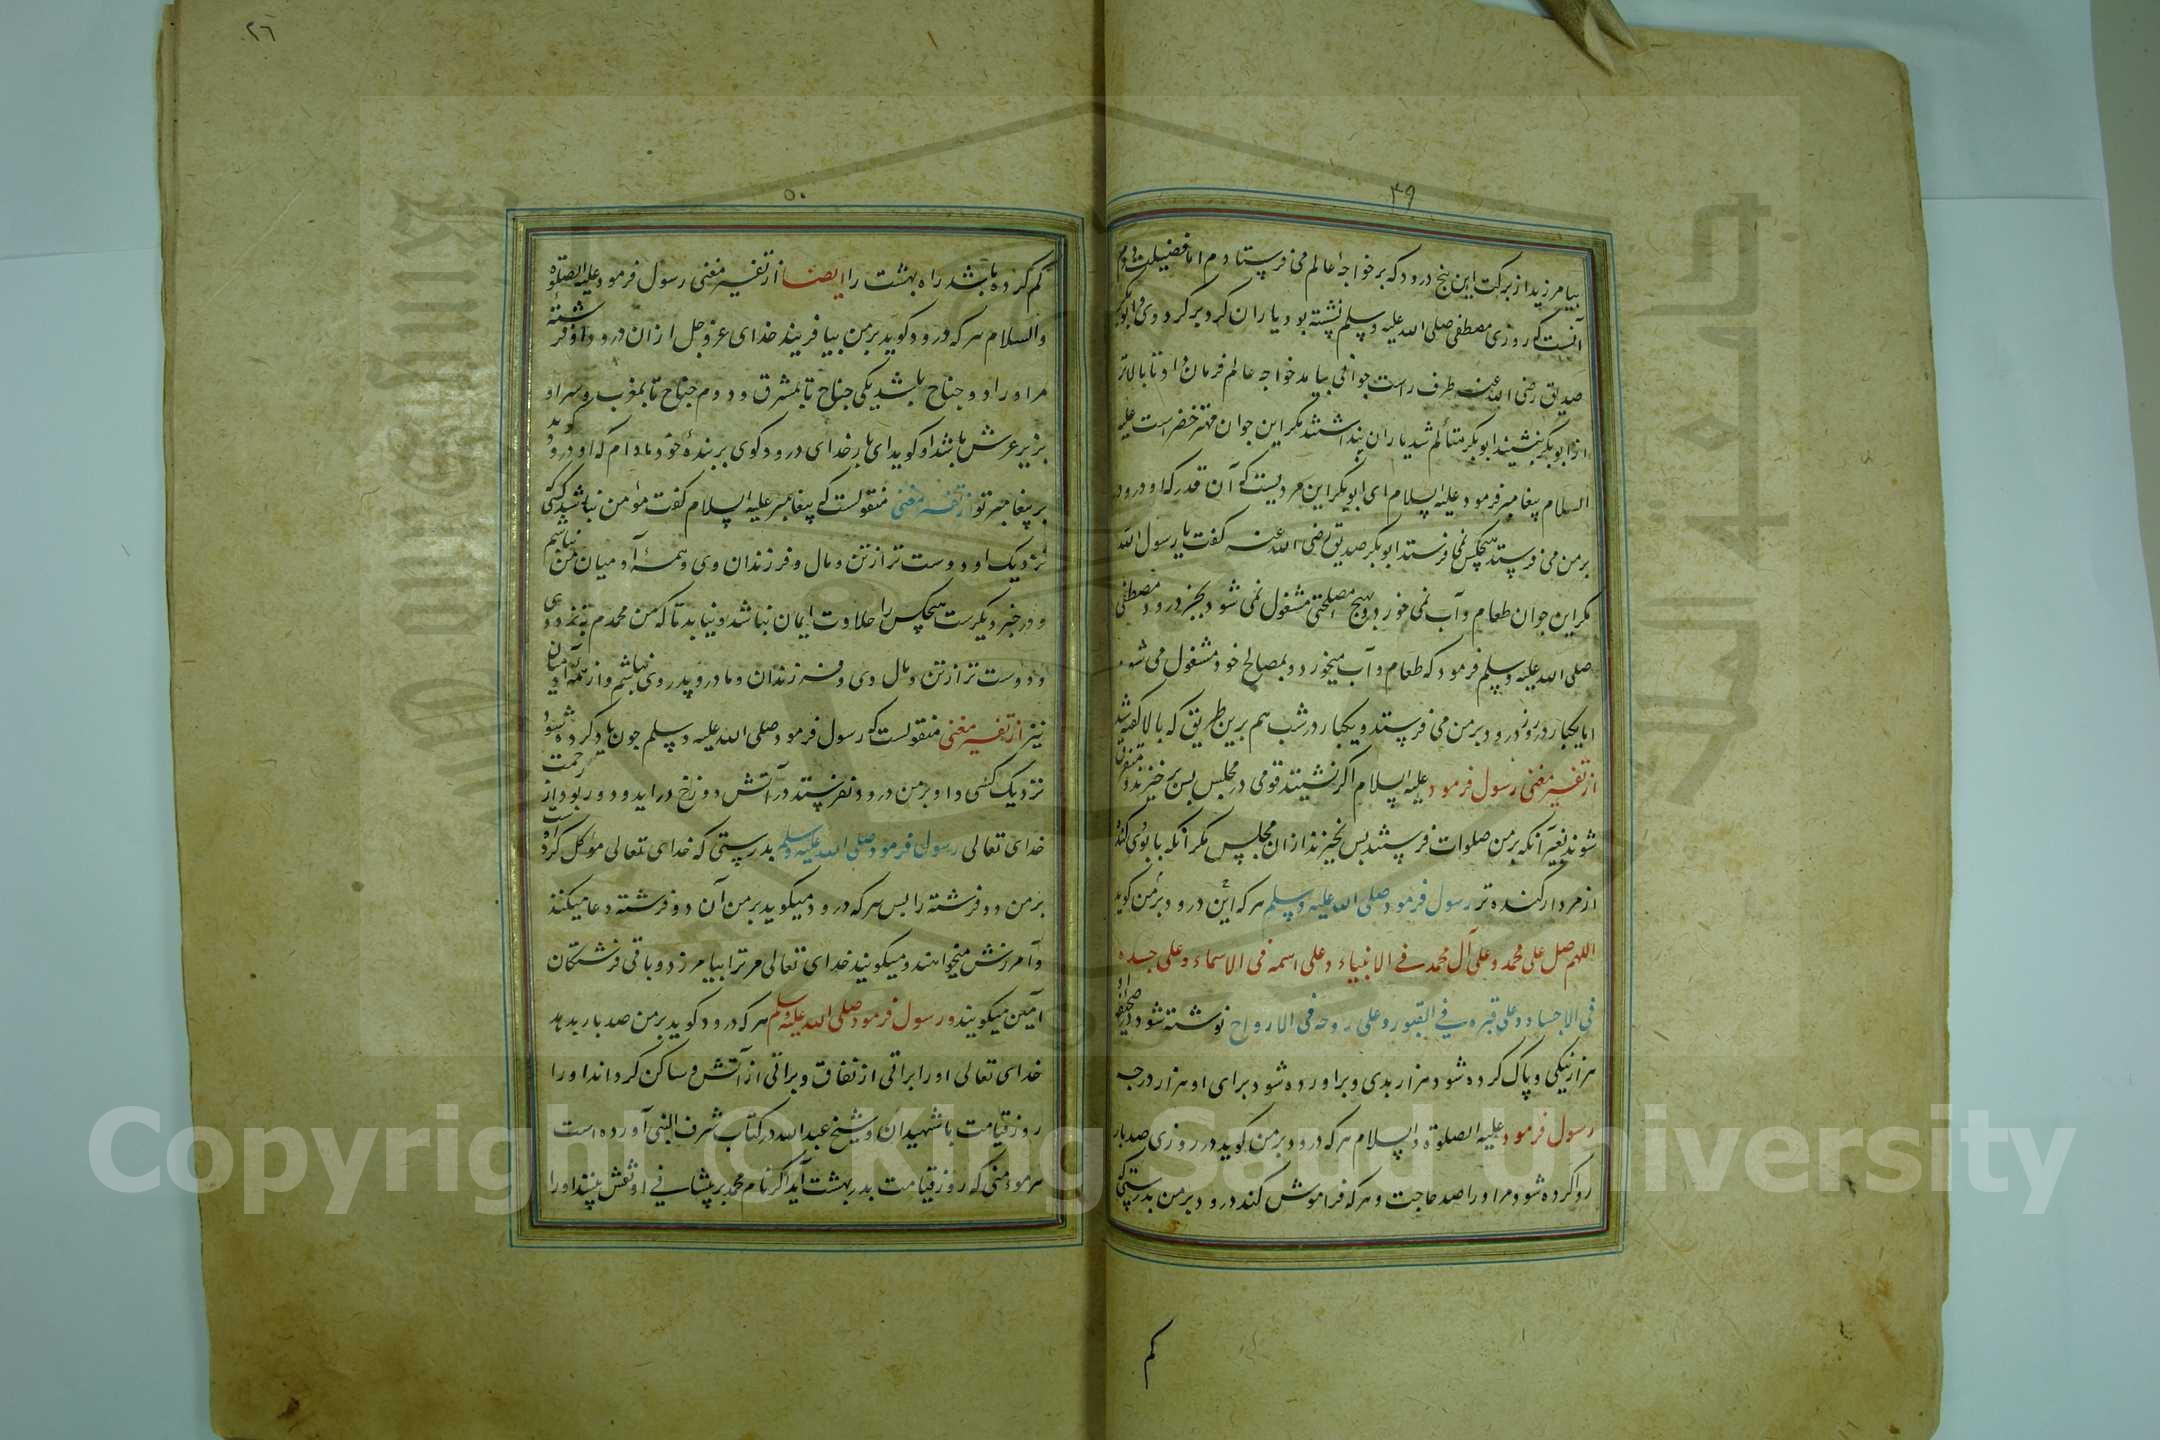 ۴۹
بیامرزید از برکت این پنج درود که بر خواجهٔ عالم می فرستادم اما فضیلت دوم
آنست که روزی مصطفی صلی الله علیه وسلم نشسته بود یاران کرد بر کرد وی و ابوبکر
صدیق رضی الله عنه طرف راست جوانی بیامد خواجه عالم فرمان داد تا بالاتر
از ابوبکر بنشیند ابوبکر متألم شد یاران پنداشتند مکر این جوان مهتر خضر است علیه
السلام پیغامبر فرمود علیه السلام ای ابوبکر این مردیست که آن قدر که او درود
بر من می فرستد هیچکس نمی فرستد ابوبکر صدیق رضی الله عنه کفت یا رسول الله
مکر این جوان طعام و آب نمی خورد و بهیچ مصلحتی مشغول نمی شود بجز درود مصطفی
صلی الله علیه وسلم فرمود که طعام و آب میخورد و بمصالح خود مشغول می شود
اما یکبار در روز درود بر من می فرستد و یکبار در شب هم برین طریق که بالا کفته شد
از تفسیر مغنی رسول فرمود علیه السلام اکر نشینند قومی در مجلس پس برخیزند و متفرق
شوند بغیر آنکه بر من صلوات فرستند پس نخیزند ازان مجلس مکر آنکه با بوی کنده
از مردار کنده تر رسول فرمود صلی الله علیه وسلم هر که این درود بر من کوید
اللهم صل علی محمد و علی آل محمد فی الانبیاء و علی اسمه فی الاسماء و علی جسده
فی الاجساد و علی قبره فی القبور و علی روحه فی الارواح نوشته شود در صحیفه او
هزار نیکی و پاک کرده شود هزار بدی و براورده شود برای او هزار درجه
رسول فرمود علیه الصلوة و السلام هر که درود بر من کوید در روزی صد بار
روا کرده شود مر او را صد حاجت و هر که فراموش کند درود بر من بدرستی که
کم
۲٦
۵۰
کم کرده باشد راه بهشت را ایضا از تفسیر مغنی رسول فرمود علیه الصلوة
والسلام هر که درود کوید بر من بیافریند خدای عز وجل ازان درود او فرشتهٔ
مر او را دو جناح باشد یکی جناح تا بمشرق و دوم جناح تا بمغرب و سر او
بزیر عرش باشد او کوید ای بار خدای درود کوی بر بندهٔ خود مادام که او درود کوید
بر پیغامبر تو از تفسیر مغنی منقولست که پیغامبر علیه السلام کفت مؤمن نباشید کسی
نزدیک او دوست تر از تن و مال و فرزندان وی و همهٔ آدمیان من نباشم
و در خبر دیکرست هیچکس را حلاوت ایمان نباشد و نیابد تا که من محمدم به نزد وی
دوست تر از تن و مال وی و فرزندان و مادر و پدر وی نباشم و از همه آدمیان
نیز از تفسیر مغنی منقولست که رسول فرمود صلی الله علیه وسلم جون یاد کرده شود
نزدیک کسی و او بر من درود نفرستد در آتش دوزخ درآید و دور بود از رحمت
خدای تعالی رسول فرمود صلی الله علیه وسلم بدرستی که خدای تعالی موکل کرده است
بر من دو فرشته را پس هر که درود میکوید بر من آن دو فرشته دعا میکنند
و آمرزش میخواهند و میکویند خدای تعالی مر ترا بیامرزد و باقی فرشتکان
آمین میکویند و رسول فرمود صلی الله علیه وسلم هر که درود کوید بر من صد بار بدهد
خدای تعالی او را براتی از نفاق و براتی از آتش و ساکن کرداند او را
روز قیامت با شهیدان و شیخ عبدالله در کتاب شرف النبی آورده است
هر مومنی که روز قیامت بدر بهشت آید اکر نام محمد بر پیشانی او نقش بینند او را
Copyright © King Saud University